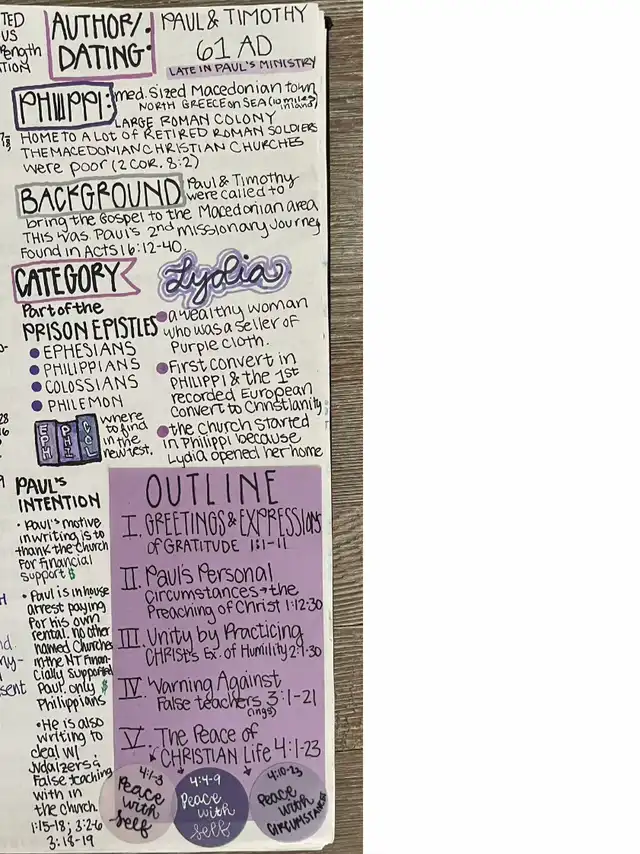 TED
US
ength
TION
AUTHOR/
DATING:
PAUL & TIMOTHY
61 AD
LATE IN PAUL'S MINISTRY
PHILIPPI:
med. sized Macedonian town
NORTH GREECE on SEA (10 miles inland)
LARGE ROMAN COLONY
HOME TO A LOT OF RETIRED ROMAN SOLDIERS
THE MACEDONIAN CHRISTIAN CHURCHES
were poor (2 COR. 8:2)
BACKGROUND
Paul & Timothy
were called to
bring the Gospel to the Macedonian area
THIS was Paul's 2nd missionary Journey
Found in Acts 16:12-40.
CATEGORY
Part of the
PRISON EPISTLES
EPHESIANS
PHILIPPIANS
COLOSSIANS
PHILEMON
EPH PHI COL
where
to find
in the
new test.
Lydia
a wealthy woman
who was a seller of
Purple cloth.
First convert in
PHILIPPI & the 1st
recorded European
convert to Christianity
the church started
in Philippi because
Lydia opened her home
PAUL'S
INTENTION
• Paul's motive
in writing is to
thank the church
For Financial
support $
• Paul is in house
arrest paying
For his own
rental. no other
named churches
in the NT Finan-
cially supported
Paul. only $
Philippians
• He is also
writing to
deal w/
Judaizers &
False teaching
with in
the church.
1:15-18; 3:2-6
3:18-19
OUTLINE
I. GREETINGS & EXPRESSIONS
of GRATITUDE 1:1-11
II. Paul's Personal
Circumstances → the
Preaching of Christ 1:12-30
III. Unity by Practicing
CHRIST'S Ex. of Humility 2:1-30
IV. Warning Against
False teachers 3:1-21
(ings)
V. The Peace of
CHRISTIAN Life 4:1-23
4:1-3
Peace
with
self
4:4-9
Peace
with
self
4:10-23
Peace
with
CIRCUMSTANCE